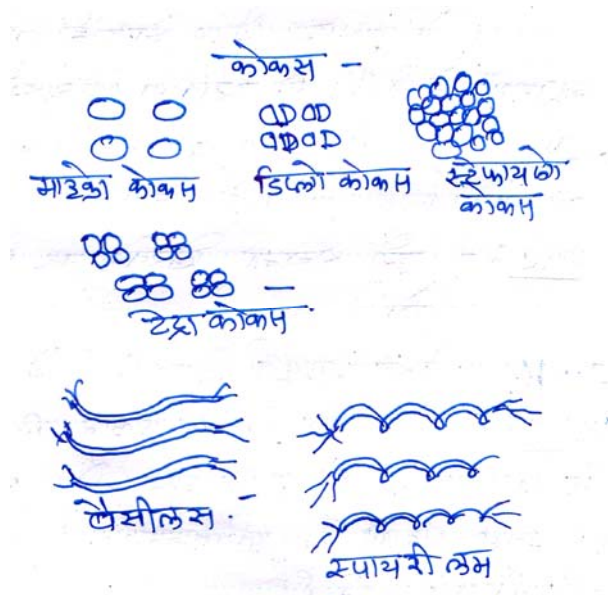 कोकस –
माइक्रो कोकस
डिप्लो कोकस
स्टेफायलो
कोकस
टेट्रा कोकस
बैसीलस -
स्पायरीलम